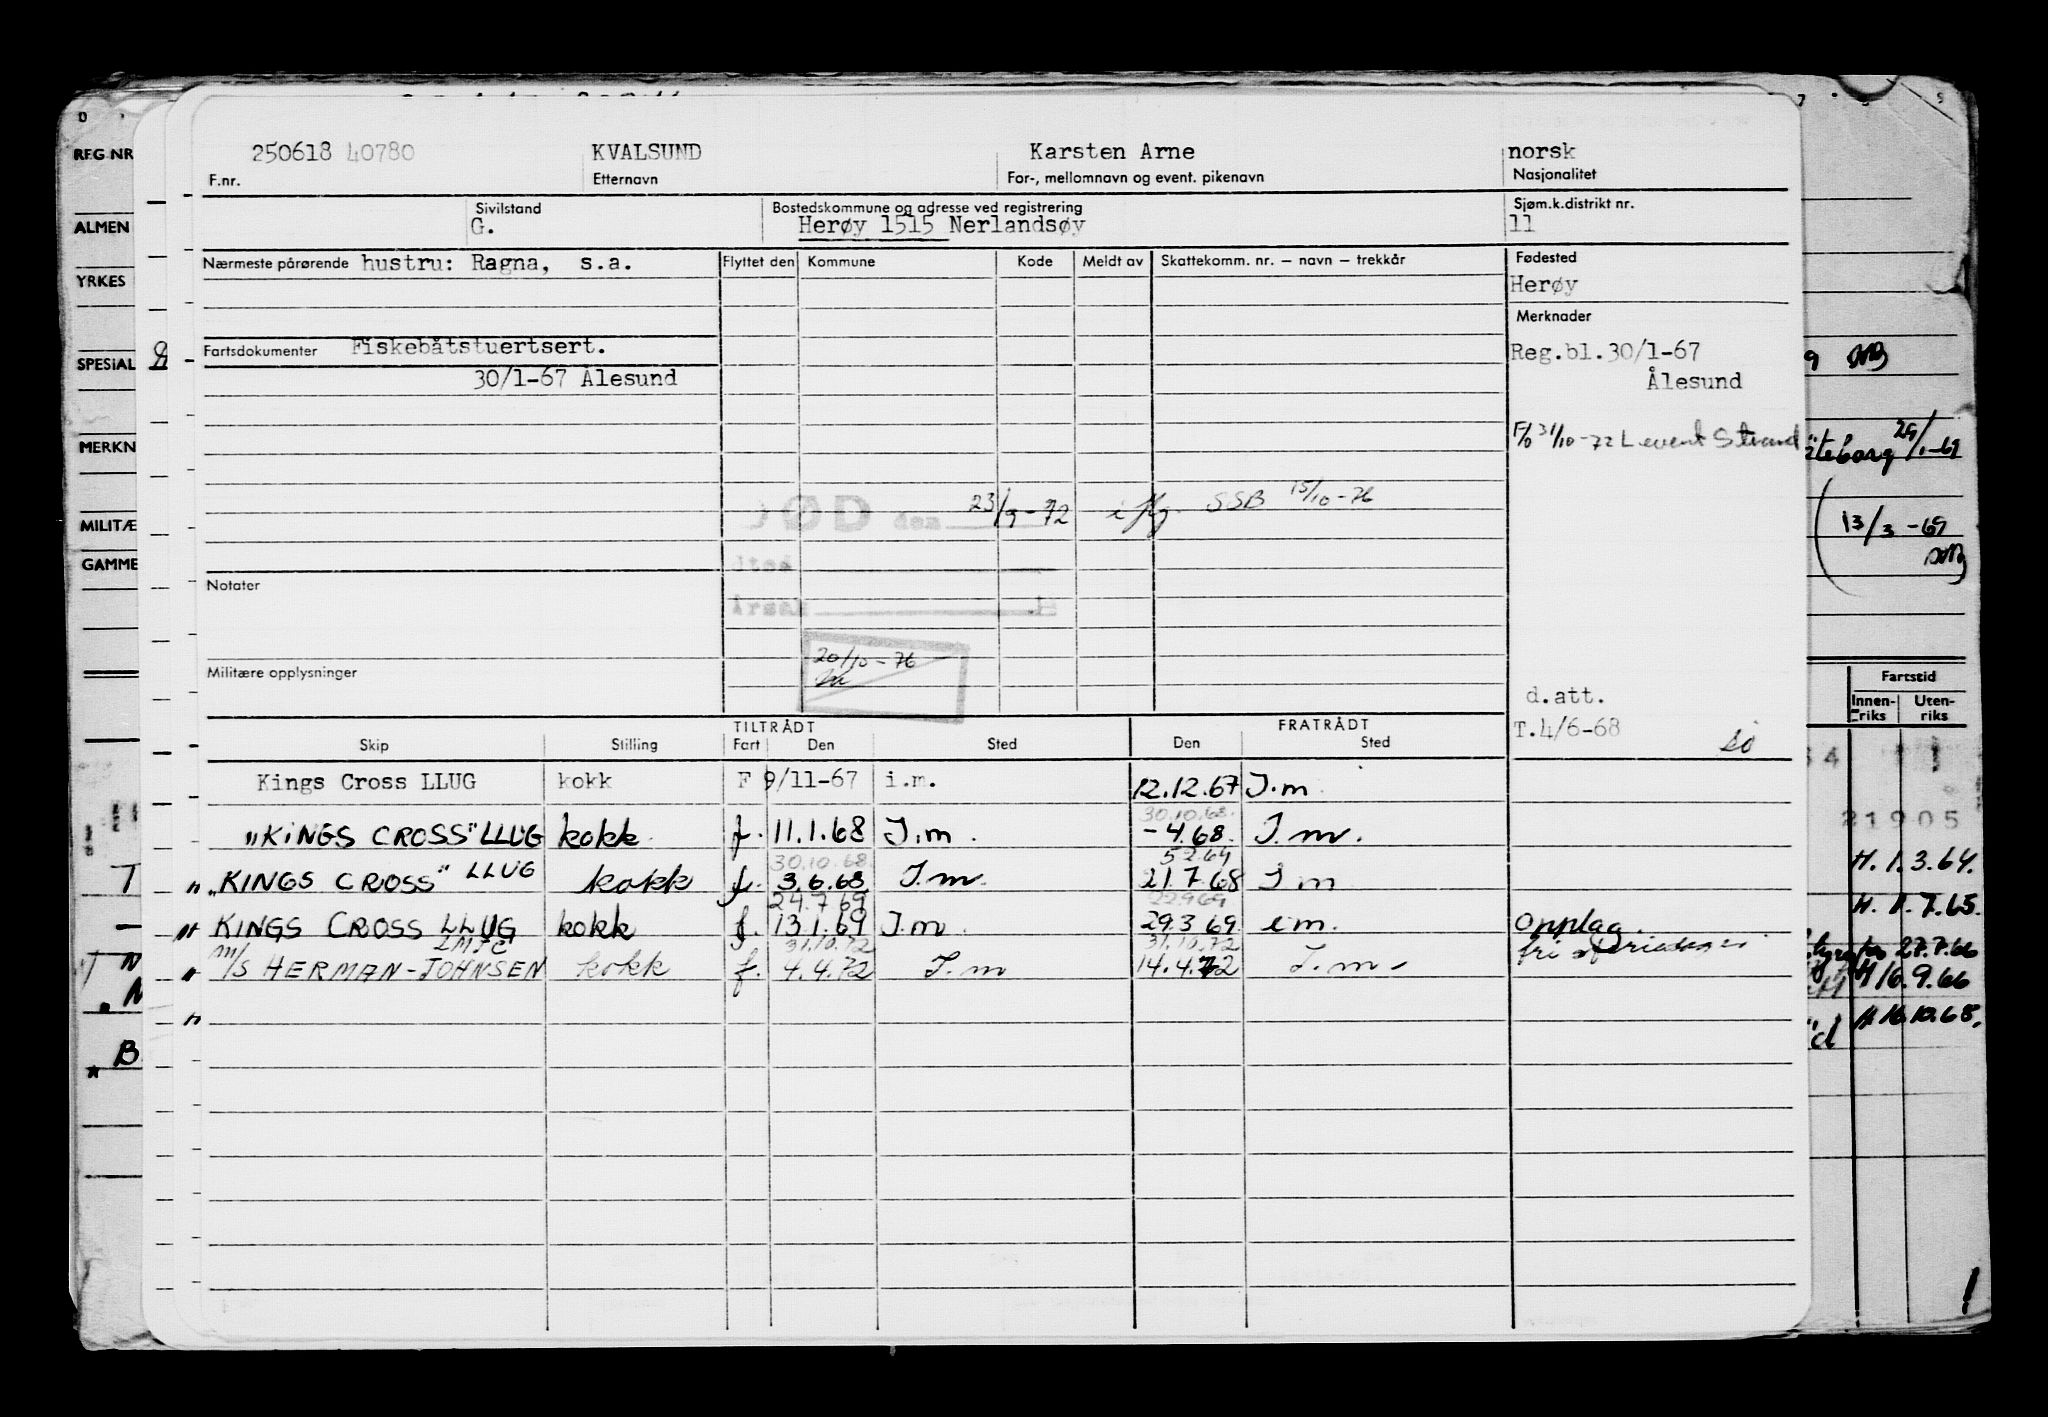 250618 40780 KVALSUND Karsten Arne norsk
F.nr. Etternavn For-, mellomnavn og event. pikenavn Nasjonalitet
Sivilstand Bostedskommune og adresse ved registrering Sjøm.k.distrikt nr.
G. Herøy 1515 Nerlandsøy 11
Nærmeste pårørende hustru: Ragna, s.a. Flyttet den Kommune Kode Meldt av Skattekomm. nr. – navn – trekkår Fødested
Herøy
Merknader
Fartsdokumenter Fiskebåtstuertsert. Reg.bl.30/1-67
30/1-67 Ålesund Ålesund
F/o 31/10-72 Levert Strand
ØD den 23/9-72 iflg. SSB 15/10-76
Notater
20/10-76
Militære opplysninger
d.att.
T.4/6-68
TILTRÅDT FRATRÅDT
Skip Stilling Fart Den Sted Den Sted
Kings Cross LLUG kokk F 9/11-67 i.m. 12.12.67 I.m
30.10.68.
"KINGS CROSS" LLUG kokk f. 11.1.68 I.m. -4.68. I.m.
30.10.68.
"KINGS CROSS" LLUG kokk f. 3.6.68 I.m. 21.7.68 I m
24.7.69
KINGS CROSS LLUG kokk f. 13.1.69 I.m. 29.3.69 i m. Opplag.
LMTC 31.10.72 31.10.72
m/s HERMAN-JOHNSEN kokk f. 4.4.72 I.m 14.4.72 I.m.
REG NR
ALMEN
YRKES
SPESIAL
MERKN
MILITÆ
GAMME
29/1-69
13/3-69
Fartstid
Innen-riks Uten-riks
21905
H. 1.3.64.
H. 1.7.65.
27.7.66
H 16.9.66
H 16.10.68.